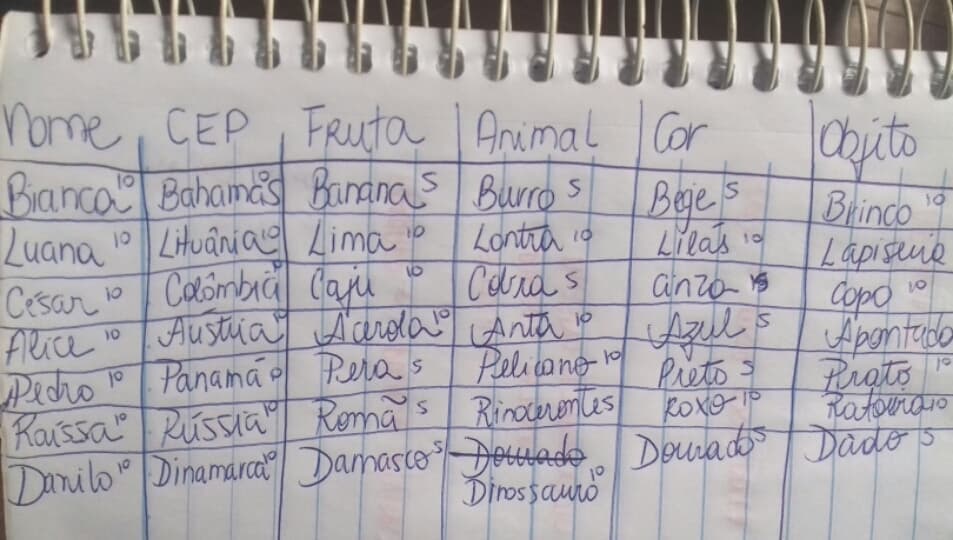 Nome CEP Fruta Animal Cor Objito
Bianca 10 Bahamas 10 Banana 5 Burro 5 Bege 5 Brinco 10
Luana 10 Lituânia 10 Lima 10 Lontra 10 Lilás 10 Lapiseira
César 10 Colômbia 10 Caju 10 Cobra 5 Cinza Copo 10
Alice 10 Áustria 10 Acerola 10 Anta 10 Azul 5 Apontado
Pedro 10 Panamá Pera 5 Pelicano 10 Preto 5 Prato 10
Raíssa 10 Rússia 10 Romã 5 Rinocerontes Roxo 10 10
Danilo 10 Dinamarca 10 Damasco 5 Dourado Dourado 5 Dado 5
Dinossauro 10